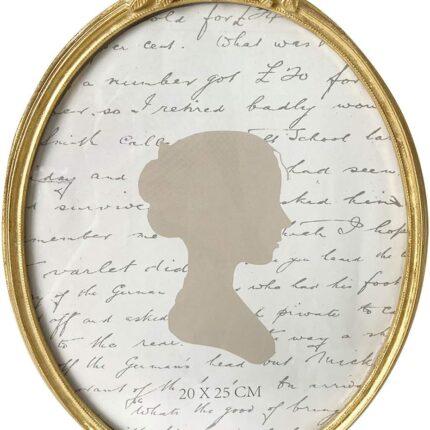 old for £24
per cent. What was
a number got £20 for
er. so I retired badly wou
Smith Calle School la
day and had seen
d survive asked him
member me which I hope
varlet did you land the
y of the German who had his foot
off and asked private to ca
to the rear. way a sh
off the German's head out
vant of the on arriv
Whats the good of bring
20 X 25 CM